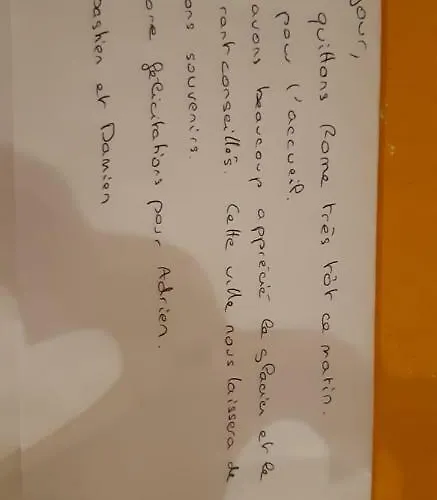 jour,
quittons Rome très tôt ce matin.
pour l'accueil.
avons beaucoup apprécié le glacier et le
rant conseillés. Cette ville nous laissera de
ons souvenirs.
ore félicitations pour Adrien.
bastien et Damien